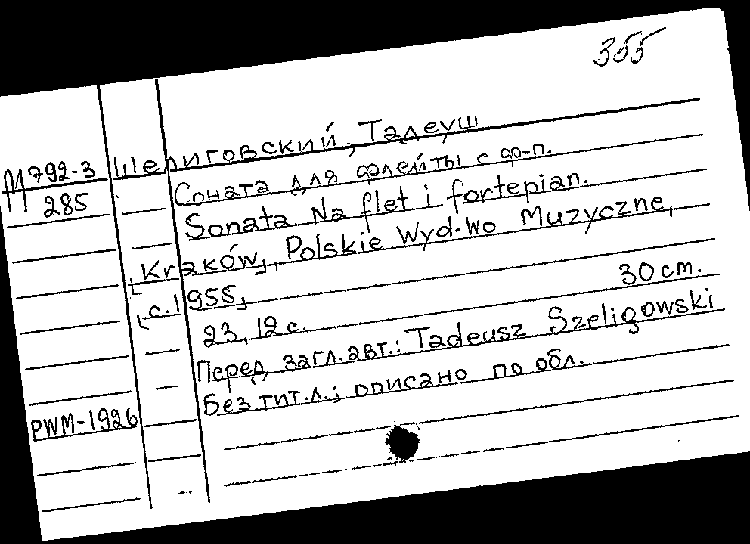 355
М792-3
285
Шелиговский, Тадеуш
Соната для флейты с ф-п.
Sonata Na flet i fortepian.
[Kraków], Polskie Wyd-wo Muzyczne,
[c.1955],
23, 12 с. 30 cm.
Перед загл. авт.: Tadeusz Szeligowski
Без тит. л.; описано по обл.
PWM-1926